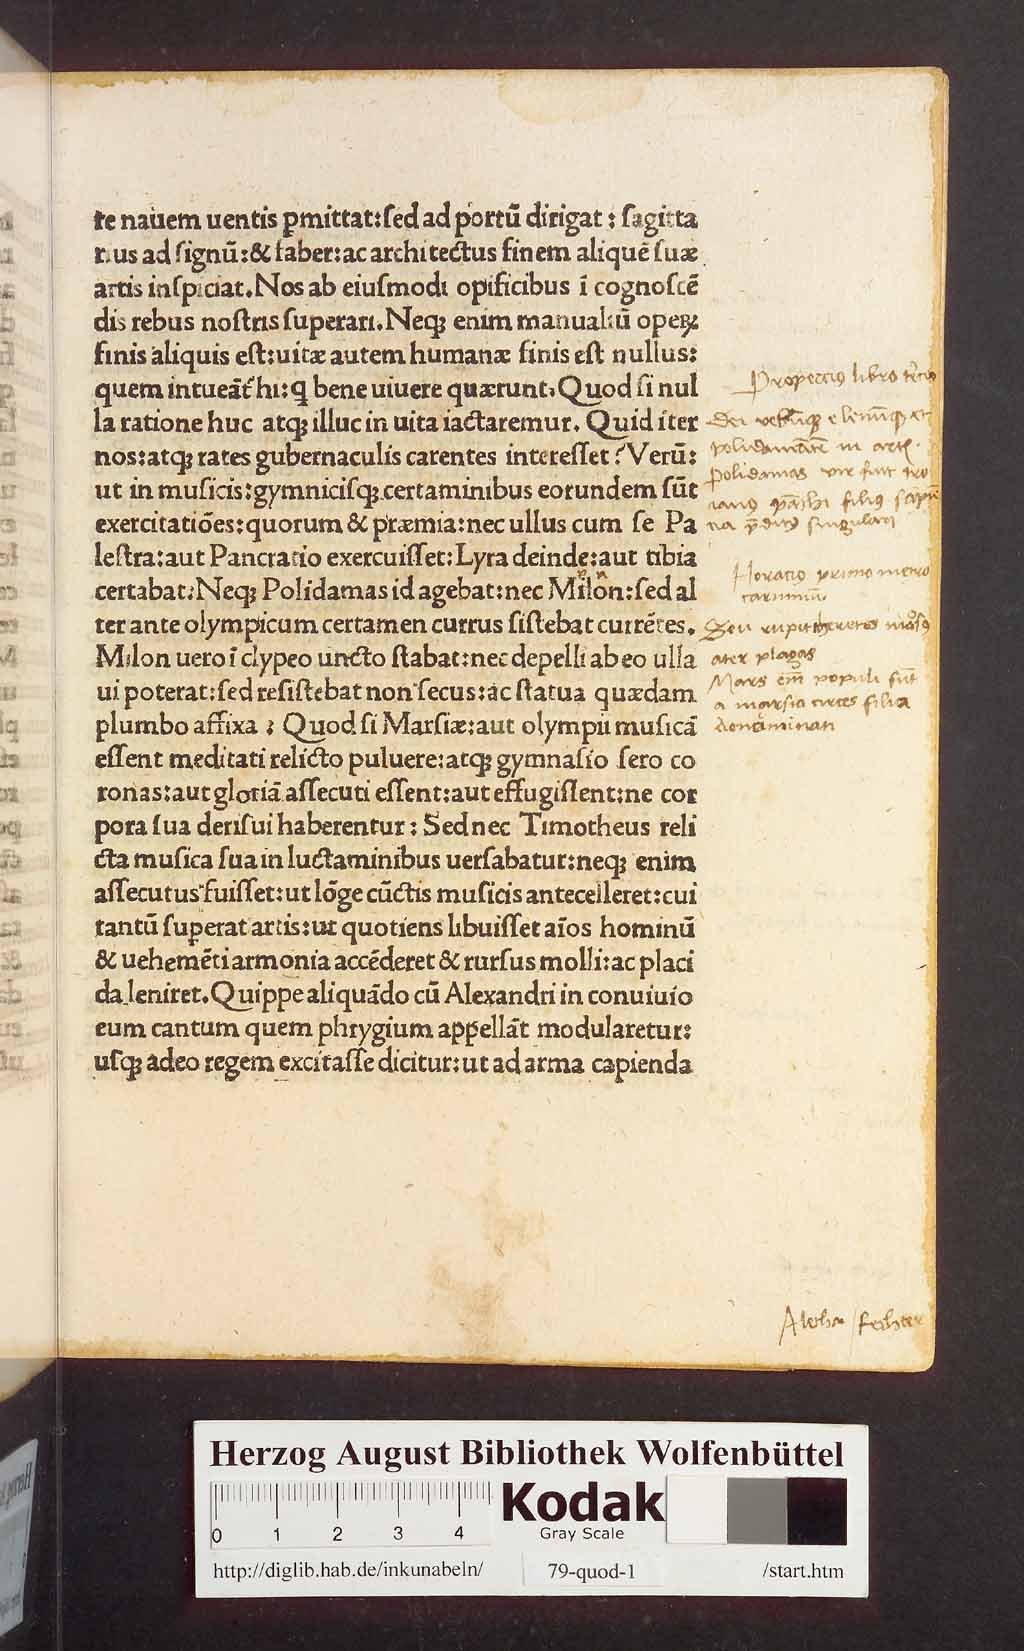 te nauem uentis ꝑmittat:ſed ad portū dirigat : ſagitta
rius ad ſignū:& faber:ac architectus finem aliquē ſuæ
artis inſpiciat.Nos ab eiuſmodi opificibus ī cognoſcē
dis rebus noſtris ſuperari.Neq; enim manualiū operꝝ
finis aliquis eſt:uitæ autem humanæ finis eſt nullus:
quem intueāt᷑ hi:q bene uiuere quærunt.Quod ſi nul
la ratione huc atq; illuc in uita iactaremur. Quid iter
nos:atq; rates gubernaculis carentes intereſſet? Verū:
ut in muſicis:gymniciſq; certaminibus eorundem ſūt
exercitatiōes:quorum & præmia:nec ullus cum ſe Pa
leſtra:aut Pancratio exercuiſſet:Lyra deinde:aut tibia
certabat:Neq; Polidamas id agebat:nec Milon:ſed al
ter ante olympicum certamen currus ſiſtebat currētes.
Milon uero ī clypeo uncto ſtabat:nec depelli ab eo ulla
ui poterat:ſed reſiſtebat non ſecus:ac ſtatua quædam
plumbo affixa : Quod ſi Marſiæ:aut olympii muſicā
eſſent meditati relicto puluere:atq; gymnaſio ſero co
ronas:aut gloriā aſſecuti eſſent:aut effugiſſent:ne cor
pora ſua deriſui haberentur: Sed nec Timotheus reli
cta muſica ſua in luctaminibus uerſabatur:neq; enim
aſſecutus fuiſſet:ut lōge cūctis muſicis antecelleret:cui
tantū ſuperat artis:ut quotiens libuiſſet aīos hominū
& uehemēti armonia accēderet & rurſus molli:ac placi
da leniret.Quippe aliquādo cū Alexandri in conuiuio
eum cantum quem phrygium appellāt modularetur:
uſq; adeo regem excitaſſe dicitur:ut ad arma capienda
Propercius libro
polidamas vir fuit tro
ianus filius
singulari
Horatio primo metro
carminum
Seu rupit teretes
ater plagas
Mars populi sūt
a marsia circes filia
denominati
Herzog August Bibliothek Wolfenbüttel
0 1 2 3 4
Kodak
Gray Scale
http://diglib.hab.de/inkunabeln/ 79-quod-1 /start.htm